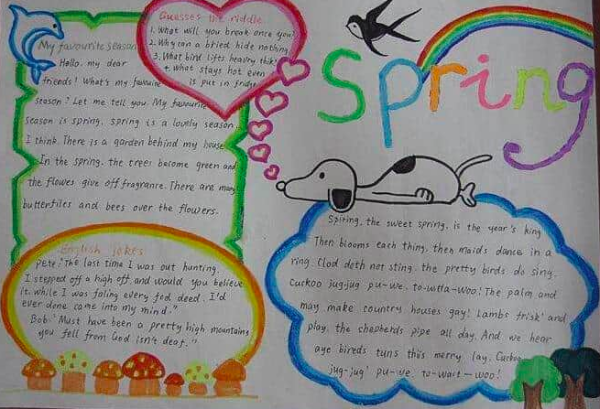 Spring
Guesses the riddle
1. What will you break once you
2. Why can a bried hide nothing
3. What bird lifts heavy thi
4. What stays hot even
is put in fridge
My favourite season
Hello, my dear
friends! What's my favourite
season? Let me tell you. My favourite
season is spring. Spring is a lovely season.
I think. There is a garden behind my house
In the spring, the trees become green and
the flowes give off fragrance. There are many
butterflies and bees over the flowers.
English jokes
Pete: "The last time I was out hunting,
I stepped off a high off, and would you believe
it, while I was faling every fed deed. I'd
ever done came into my mind."
Bob: "Must have been a pretty high mountains
you fell from God isn't deaf."
Spiring, the sweet spring, is the year's king
Then blooms each thing, then maids dance in a
ring. Clod doth not sting, the pretty birds do sing,
Cuckoo jug-jug pu-we, to-witta-woo! The palm and
may make country houses gay! Lambs frisk' and
play, the shepherds pipe all day. And we hear
aye bireds tuns this merry lay. Cuckoo
jug-jug' pu-we. to-wait-woo!